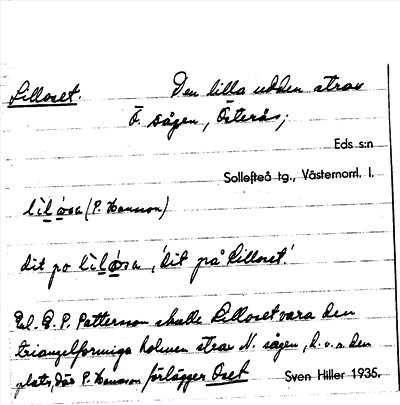 Lilloset. Den lilla udden strax
Ö. sågen, Österås;
Eds s:n
Sollefteå tg., Västernorrl. l.
(P. Hansson)
dit po , 'dit på Lilloset.'
Enl. E. P. Pattersson skulle Lilloset vara den
triangelformiga holmen strax N. sågen, d.v.s. den
plats, där P. Hansson förlägger Oset
Sven Hiller 1935.